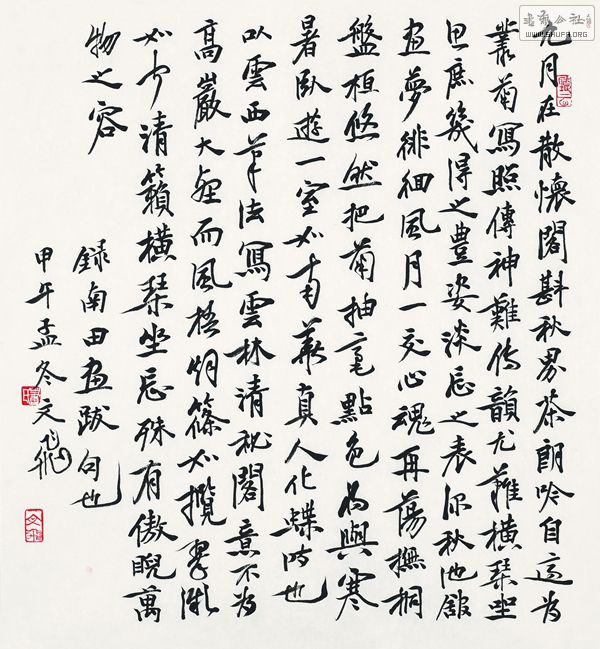 九月在散懷閣斟秋界茶朗吟自適為
叢菊寫照傳神難傳韻尤難橫琴坐
思庶幾得之豐姿淡忘之表深秋池館
畫夢徘徊風月一交心魂再蕩撫桐
盤桓悠然把菊抽毫點色為與寒
暑臥遊一室如南華真人化蝶時也
以雲西筆法寫雲林清祕閣意不為
高巖大壑而風梧烟篠如攬翠微
如聞清籟橫琴坐忘殊有傲睨萬
物之容
錄南田畫跋句也
甲午孟冬文飛
WWW.SHUFA.ORG